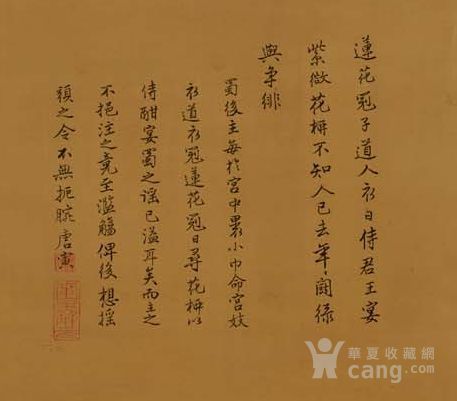 蓮花冠子道人衣日侍君王宴
紫微花柳不知人已去年々鬬綠
與爭緋
蜀後主每於宮中裹小巾命宮妓
衣道衣冠蓮花冠日尋花柳以
侍酣宴蜀之謠已溢耳矣而主之
不挹注之竟至濫觴俾後想搖
頭之令不無扼腕唐寅
華夏收藏網
cang.com